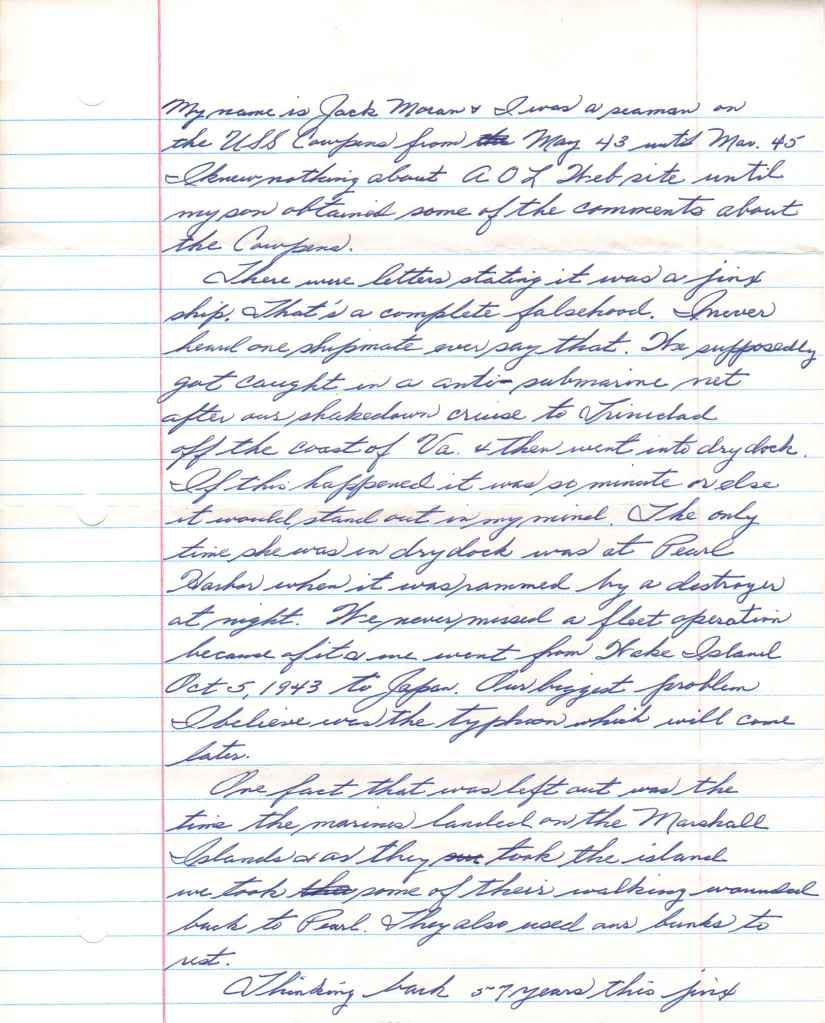 My name is Jack Moran & I was a seaman on
the USS Cowpens from the May 43 until Mar. 45
I knew nothing about A O L Web site until
my son obtained some of the comments about
the Cowpens.
There were letters stating it was a jinx
ship. That's a complete falsehood. I never
heard one shipmate ever say that. We supposedly
got caught in a anti-submarine net
after our shakedown cruise to Trinidad
off the coast of Va. & then went into dry dock.
If this happened it was so minute or else
it would stand out in my mind. The only
time she was in dry dock was at Pearl
Harbor when it was rammed by a destroyer
at night. We never missed a fleet operation
because of it & we went from Wake Island
Oct 5, 1943 to Japan. Our biggest problem
I believe was the typhoon which will come
later.
One fact that was left out was the
time the marines landed on the Marshall
Islands & as they took the island
we took some of their walking wounded
back to Pearl. They also used our bunks to
rest.
Thinking back 57 years this jinx